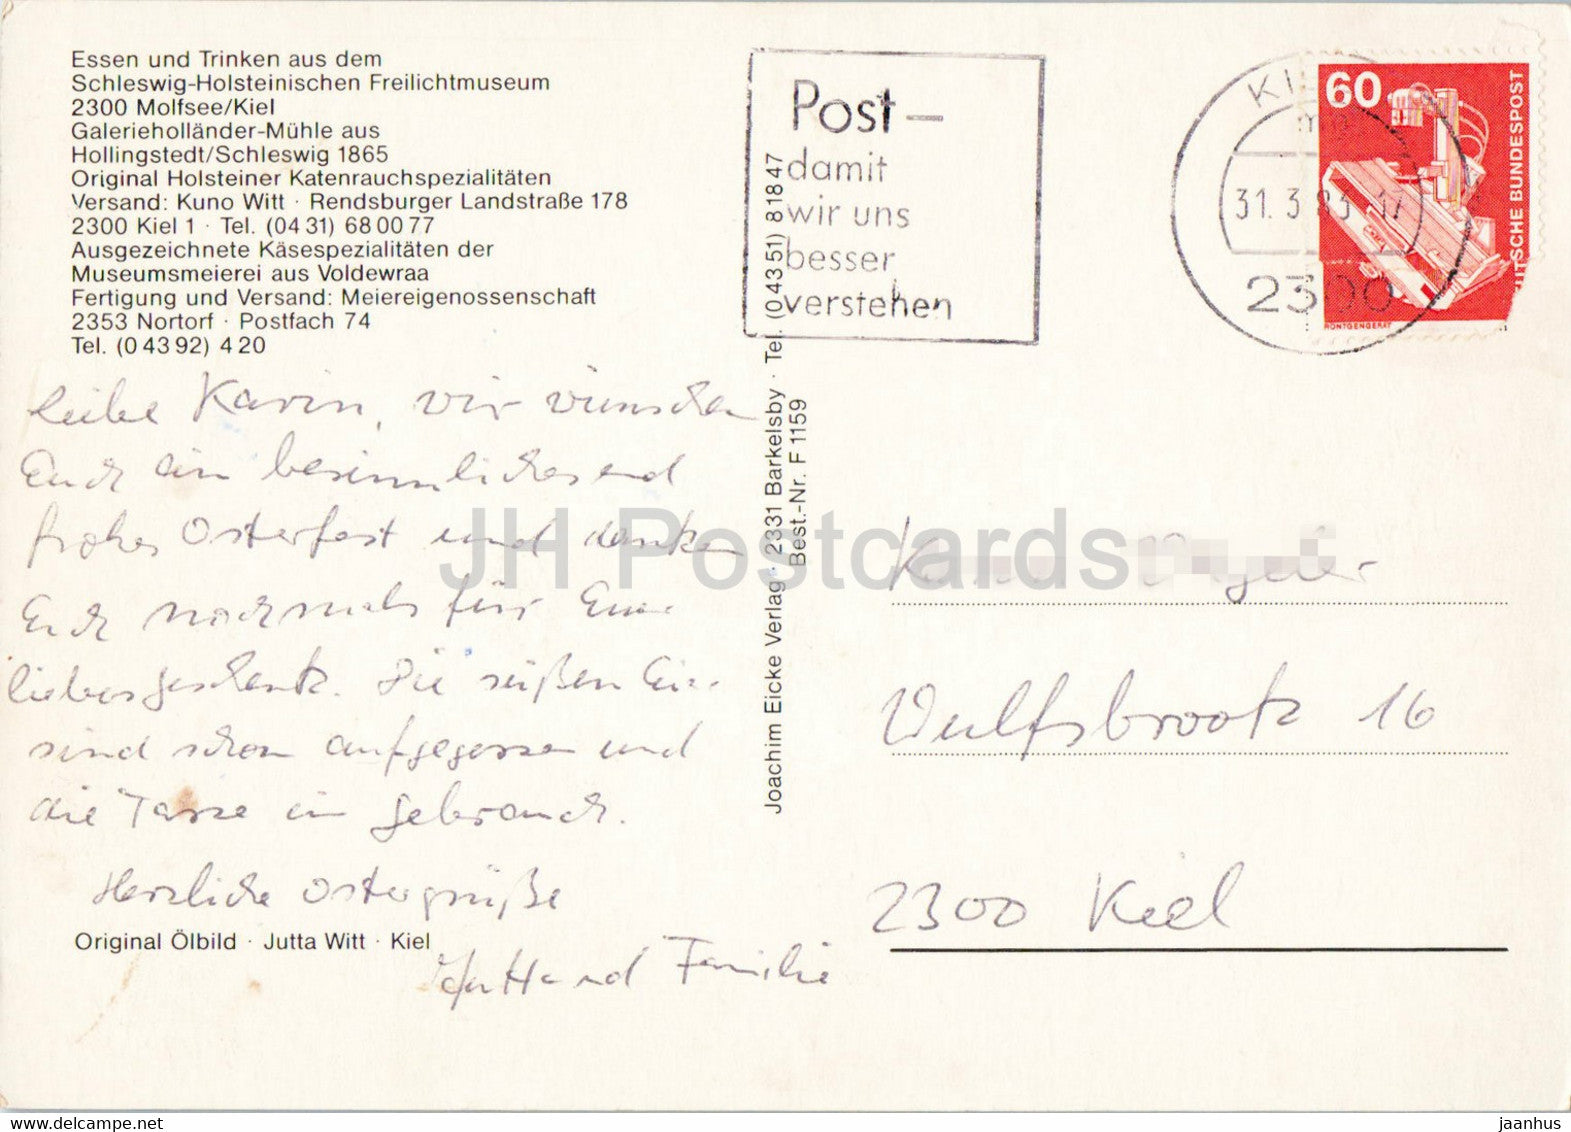 Essen und Trinken aus dem
Schleswig-Holsteinischen Freilichtmuseum
2300 Molfsee/Kiel
Galerieholländer-Mühle aus
Hollingstedt/Schleswig 1865
Original Holsteiner Katenrauchspezialitäten
Versand: Kuno Witt · Rendsburger Landstraße 178
2300 Kiel 1 · Tel. (04 31) 68 00 77
Ausgezeichnete Käsespezialitäten der
Museumsmeierei aus Voldewraa
Fertigung und Versand: Meiereigenossenschaft
2353 Nortorf · Postfach 74
Tel. (0 43 92) 4 20
Liebe Karin, wir wünschen
Euch ein besinnliches und
frohes Osterfest und danken
Euch nochmals für Euer
liebesgeschenk. Die süßen Eier
sind schon aufgegessen und
die Tasse in gebrauch.
Herzliche Ostergrüße
Original Ölbild · Jutta Witt · Kiel
und Familie
Joachim Eicke Verlag · 2331 Barkelsby · Tel. (0 43 51) 8 18 47
Best.-Nr. F 1159
Post-
damit
wir uns
besser
verstehen
31.3.83.17
2300
60
DEUTSCHE BUNDESPOST
RÖNTGENGERÄT
Wulfsbrook 16
2300 Kiel
JH Postcards
www.delcampe.net
jaanhus